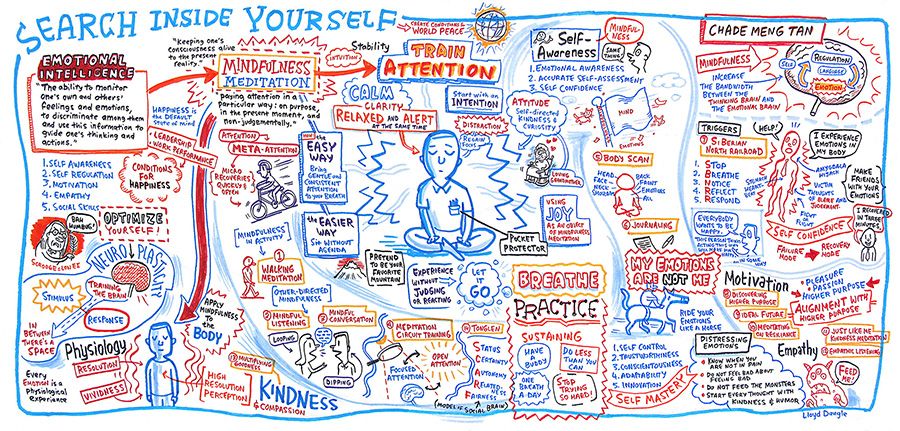 SEARCH INSIDE YOURSELF
EMOTIONAL
INTELLIGENCE
"The ability to monitor
one's own and others'
feelings and emotions,
to discriminate among them
and use this information to
guide one's thinking and
actions."
1. SELF AWARENESS
2. SELF REGULATION
3. MOTIVATION
4. EMPATHY
5. SOCIAL SKILLS
"Keeping one's
consciousness alive
to the present
reality."
MINDFULNESS
MEDITATION
paying attention in a
particular way: on purpose,
in the present moment, and
non-judgementally."
HAPPINESS is
the DEFAULT
state of mind
LEADERSHIP
WORK PERFORMANCE
CONDITIONS
FOR
HAPPINESS
BAH
HUMBUG!
OPTIMIZE
YOURSELF!
NEURO PLASTICITY
TRAINING
THE BRAIN
STIMULUS
RESPONSE
IN
BETWEEN
THERE'S A
SPACE
Physiology
RESOLUTION
VIVIDNESS
Every
Emotion is a
physiological
experience
APPLY
MINDFULNESS
to the
BODY
HIGH
RESOLUTION
PERCEPTION
INTUITION
Stability
CREATE CONDITIONS for
WORLD PEACE
TRAIN
ATTENTION
CALM
CLARITY
RELAXED AND ALERT
AT THE SAME TIME
Start with an
INTENTION
DISTRACTION
REGAIN
FOCUS
ATTITUDE
Self-directed
KINDNESS
CURIOSITY
LOVING
GRANDMOTHER
USING
JOY
AS AN OBJECT
OF MINDFULNESS
MEDITATION
POCKET
PROTECTOR
ATTENTION
META-ATTENTION
MICRO
RECOVERIES
QUICKLY &
OFTEN
the
EASY
WAY
Bring
GENTLE and
CONSISTENT
ATTENTION
to YOUR BREATH
the EASIER
WAY
Sit WITHOUT
AGENDA
MINDFULNESS
IN ACTIVITY
PRETEND TO
BE YOUR
FAVORITE
MOUNTAIN
EXPERIENCE
WITHOUT
JUDGING
OR REACTING
LET
IT
GO
① WALKING
MEDITATION
OTHER-DIRECTED
MINDFULNESS
② MINDFUL
LISTENING
③ MINDFUL
CONVERSATION
LOOPING
DIPPING
④ MEDITATION
CIRCUIT TRAINING
FOCUSED
ATTENTION
OPEN
ATTENTION
MULTIPLYING
GOODNESS
KINDNESS
+ COMPASSION
TONGLEN
STATUS
CERTAINTY
AUTONOMY
RELATEDNESS
FAIRNESS
(MODEL of SOCIAL BRAIN)
Self-
Awareness
1. EMOTIONAL AWARENESS
2. ACCURATE SELF-ASSESSMENT
3. SELF CONFIDENCE
MINDFUL-
NESS
SAME
THING!
MIND
⑤ BODY SCAN
HEAD
FACE
NECK
SHOULDERS
BACK
FRONT
EMOTIONS
ALL
⑥ JOURNALING
MY EMOTIONS
ARE NOT ME
RIDE YOUR
EMOTIONS
LIKE A HORSE
BREATHE
PRACTICE
SUSTAINING
HAVE
a
BUDDY
DO LESS
THAN YOU
CAN
ONE
BREATH
A DAY
STOP
TRYING
SO HARD!
1. SELF CONTROL
2. TRUSTWORTHINESS
3. CONSCIENTIOUSNESS
4. ADAPTABILITY
5. INNOVATION
SELF MASTERY
CHADE MENG TAN
MINDFULNESS
INCREASE
THE BANDWIDTH
BETWEEN THE
THINKING BRAIN and
the EMOTIONAL BRAIN
SELF
REGULATION
LANGUAGE
EMOTION
TRIGGERS
HELP!
⑦ SIBERIAN
NORTH RAILROAD
1. STOP
2. BREATHE
3. NOTICE
4. REFLECT
5. RESPOND
AMYGDALA
HIJACK
VICTIM
THOUGHTS
OF BLAME and
JUDGEMENT
FIGHT
or
FLIGHT
I EXPERIENCE
EMOTIONS IN
MY BODY
MAKE
FRIENDS WITH
YOUR EMOTIONS
I RECOVERED
IN THREE
MINUTES
EVERYBODY
WANTS TO BE
HAPPY.
SELF CONFIDENCE
FAILURE
MODE
RECOVERY
MODE
Motivation
⑧ DISCOVERING
HIGHER PURPOSE
⑨ IDEAL FUTURE
⑩ MEDITATION
on RESILIENCE
PLEASURE
PASSION
HIGHER PURPOSE
ALIGNMENT WITH
HIGHER PURPOSE
DISTRESSING
EMOTIONS
KNOW WHEN YOU
ARE NOT IN PAIN
DO NOT FEEL BAD ABOUT
FEELING BAD
DO NOT FEED THE MONSTERS
START EVERY THOUGHT WITH
KINDNESS & HUMOR
Empathy
JUST LIKE ME
KINDNESS MEDITATION
EMPATHIC LISTENING
FEED
ME!
Lloyd Dangle